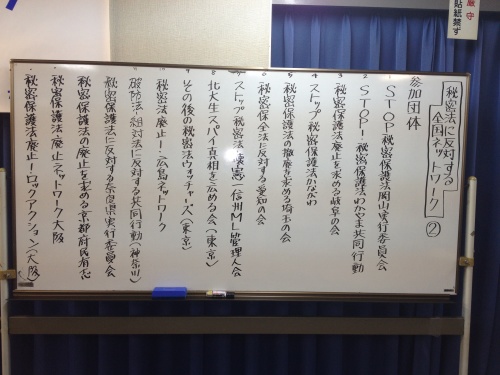 厳守
貼紙禁ず
秘密法に反対する
全国ネットワーク ②
参加団体
1 STOP秘密保護法岡山実行委員会
2 STOP!秘密保護法わかやま共同行動
3 秘密保護法廃止を求める岐阜の会
4 ストップ秘密保護法かながわ
5 秘密保護法の撤廃を求める埼玉の会
6 秘密保全法に反対する愛知の会
7 ストップ秘密法 信州ML管理人会
8 北大生スパイ真相を広める会(東京)
9 その後の秘密法ウォッチャーズ(東京)
・秘密法廃止!広島ネットワーク
・破防法・組対法に反対する共同行動(神奈川)
・秘密保護法に反対する奈良県実行委員会
・秘密保護法の廃止を求める京都府民有志
・秘密保護法廃止ネットワーク大阪
・秘密保護法廃止!ロックアクション(大阪)